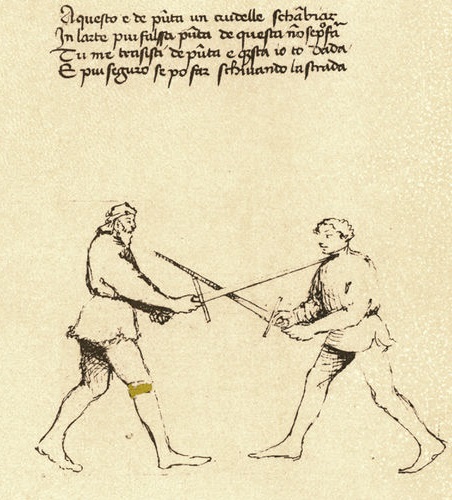 Aquesto e de pūta un crudelle schābiar
In larte piu falsa pūta de questa nō se pō fā
Tu me trasisti de pūta e q̄sta io to dada
E piu seguro se po far schiuando la strada